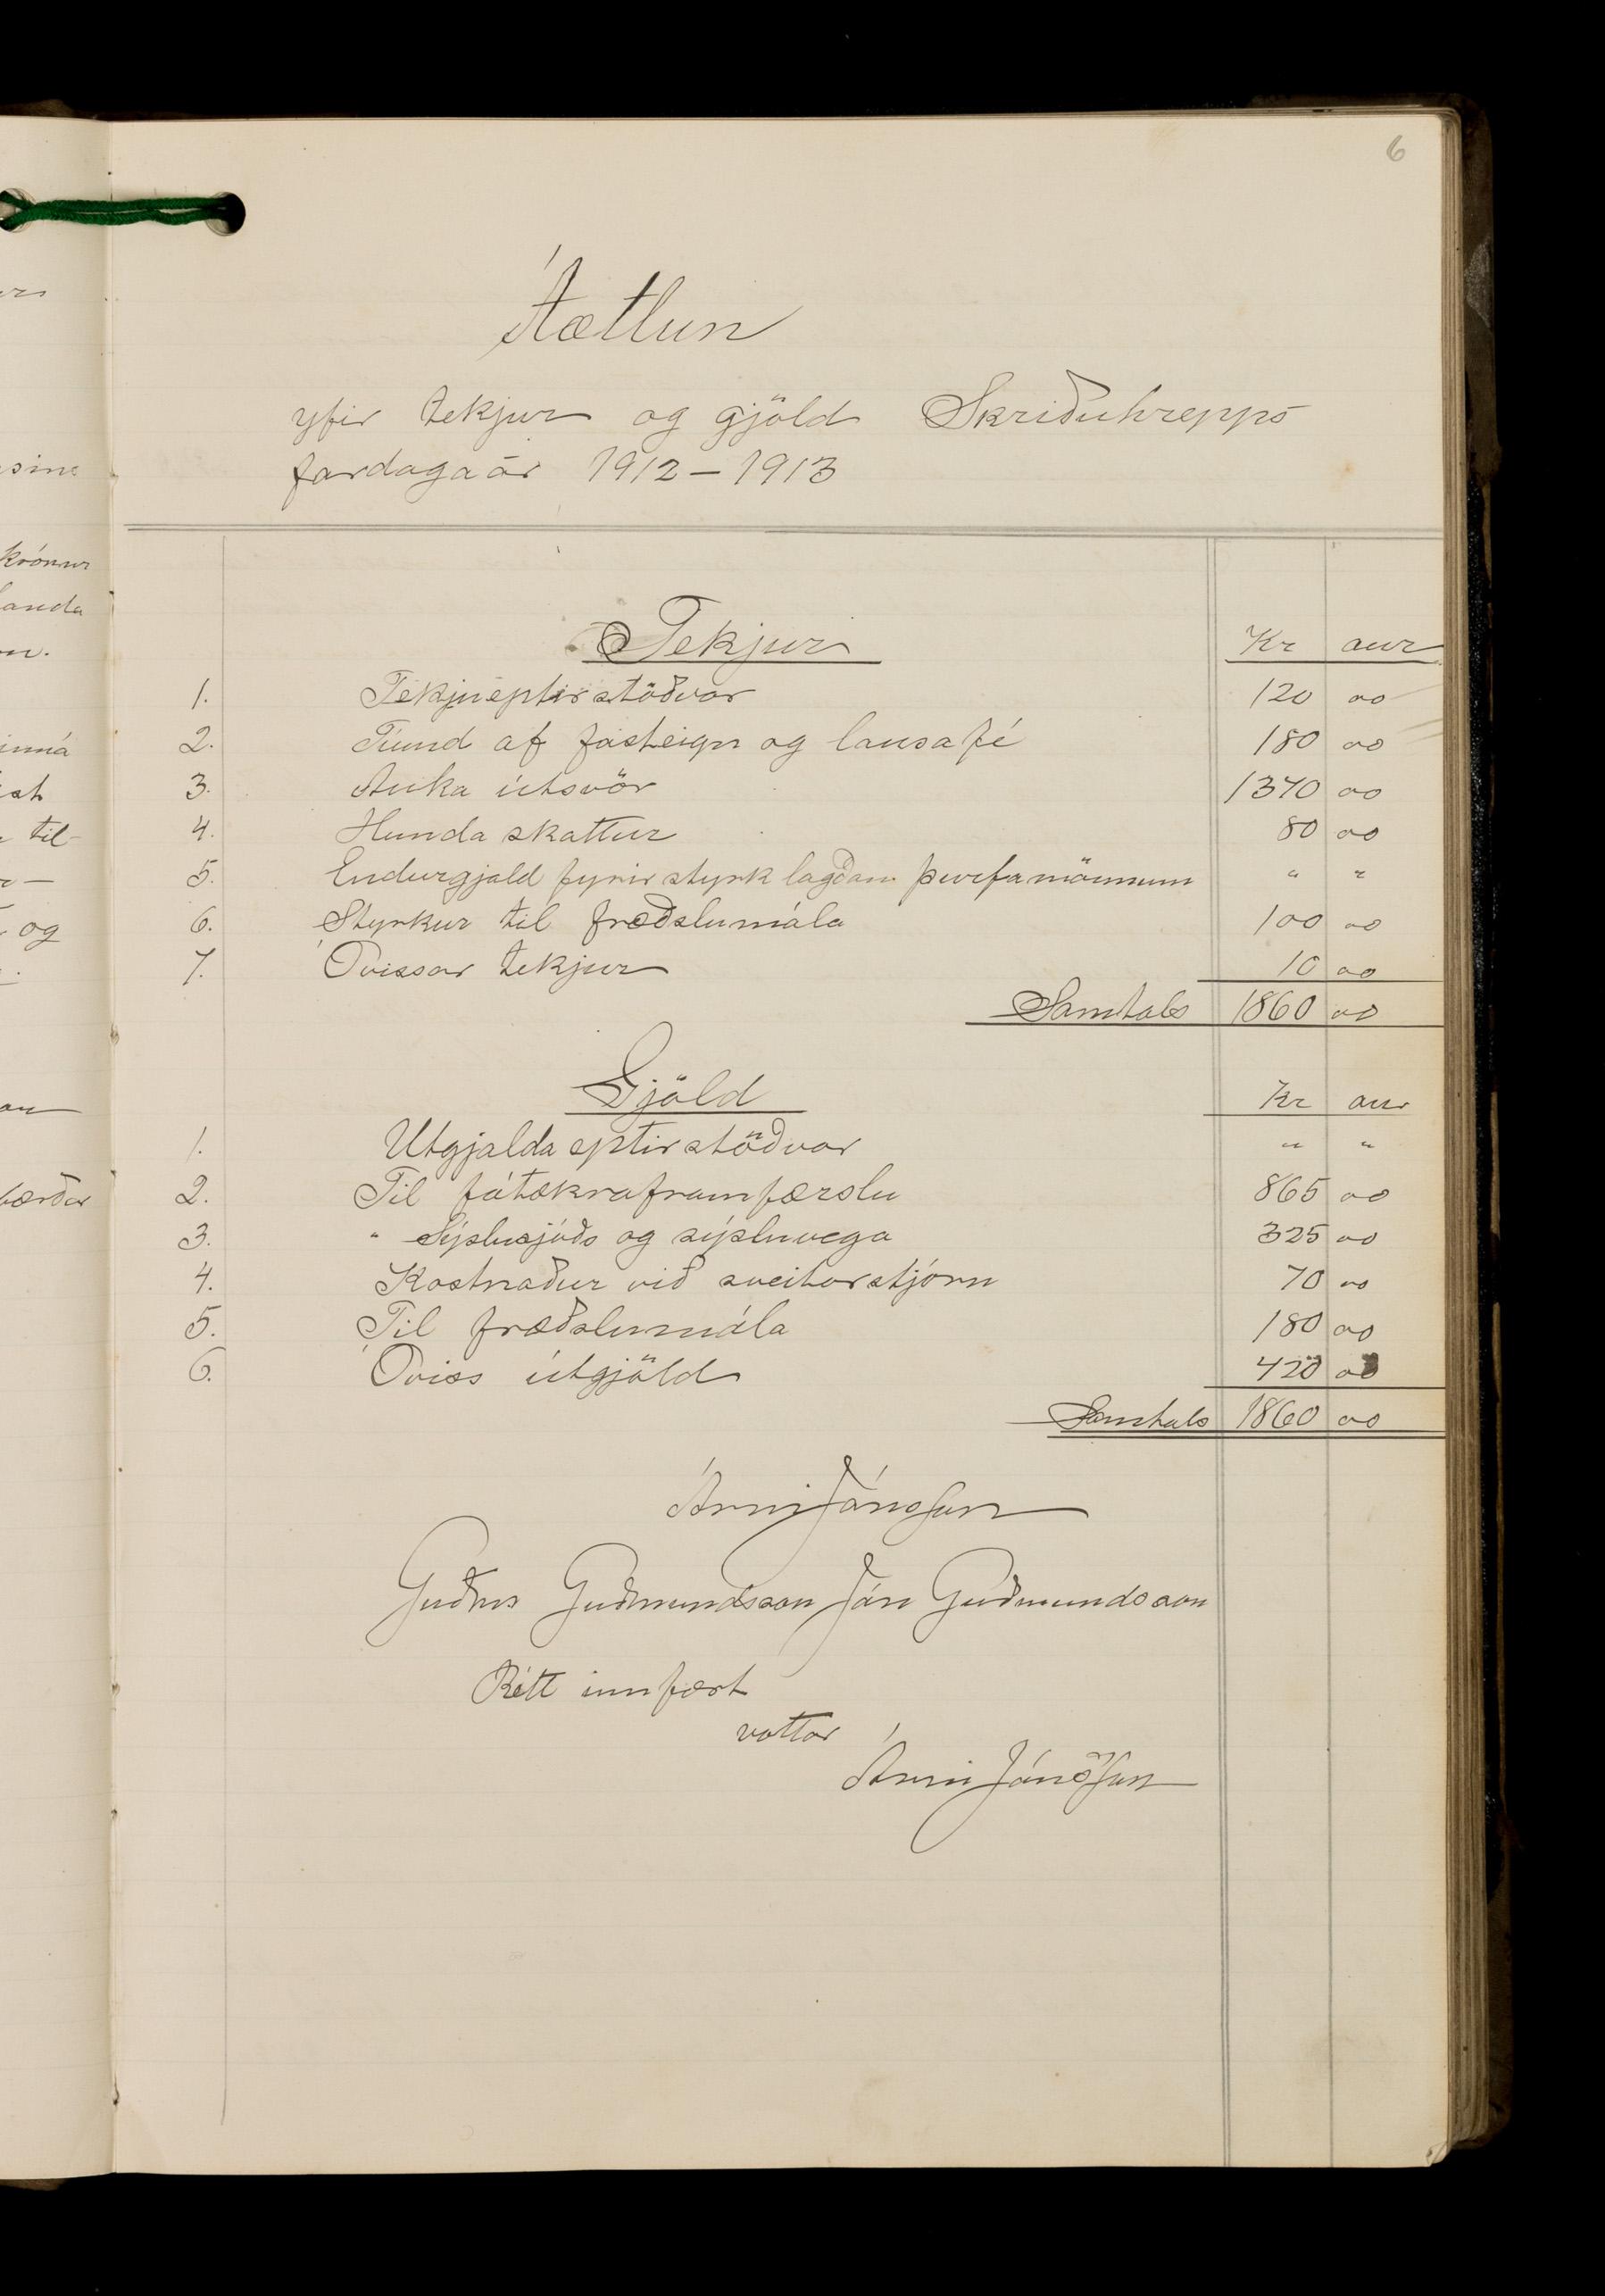 6
Áætlun
yfir tekjur og gjöld Skriðuhrepps
fardagaár 1912 – 1913
Tekjur Kr aur
1. Tekjueptirstöðvar 120 00
2. Tíund af fasteign og lausafé 180 00
3. Auka útsvör 1370 00
4. Hunda skattur 80 00
5. Endurgjald fyrir styrk lagðan þurfamönnum " "
6. Styrkur til fræðslumála 100 00
7. Óvissar tekjur 10 00
Samtals 1860 00
Gjöld Kr aur
1. Utgjalda eptirstöðvar " "
2. Til fátækraframfærslu 865 00
3. " Sýslusjóðs og sýsluvega 325 00
4. Kostnaður við sveitarstjórn 70 00
5. Til fræðslumála 180 00
6. Óviss útgjöld 420 00
Samtals 1860 00
Árni Jónsson
Guðm Guðmundsson Jón Guðmundsson
Rétt innfært
vottar
Árni Jónsson